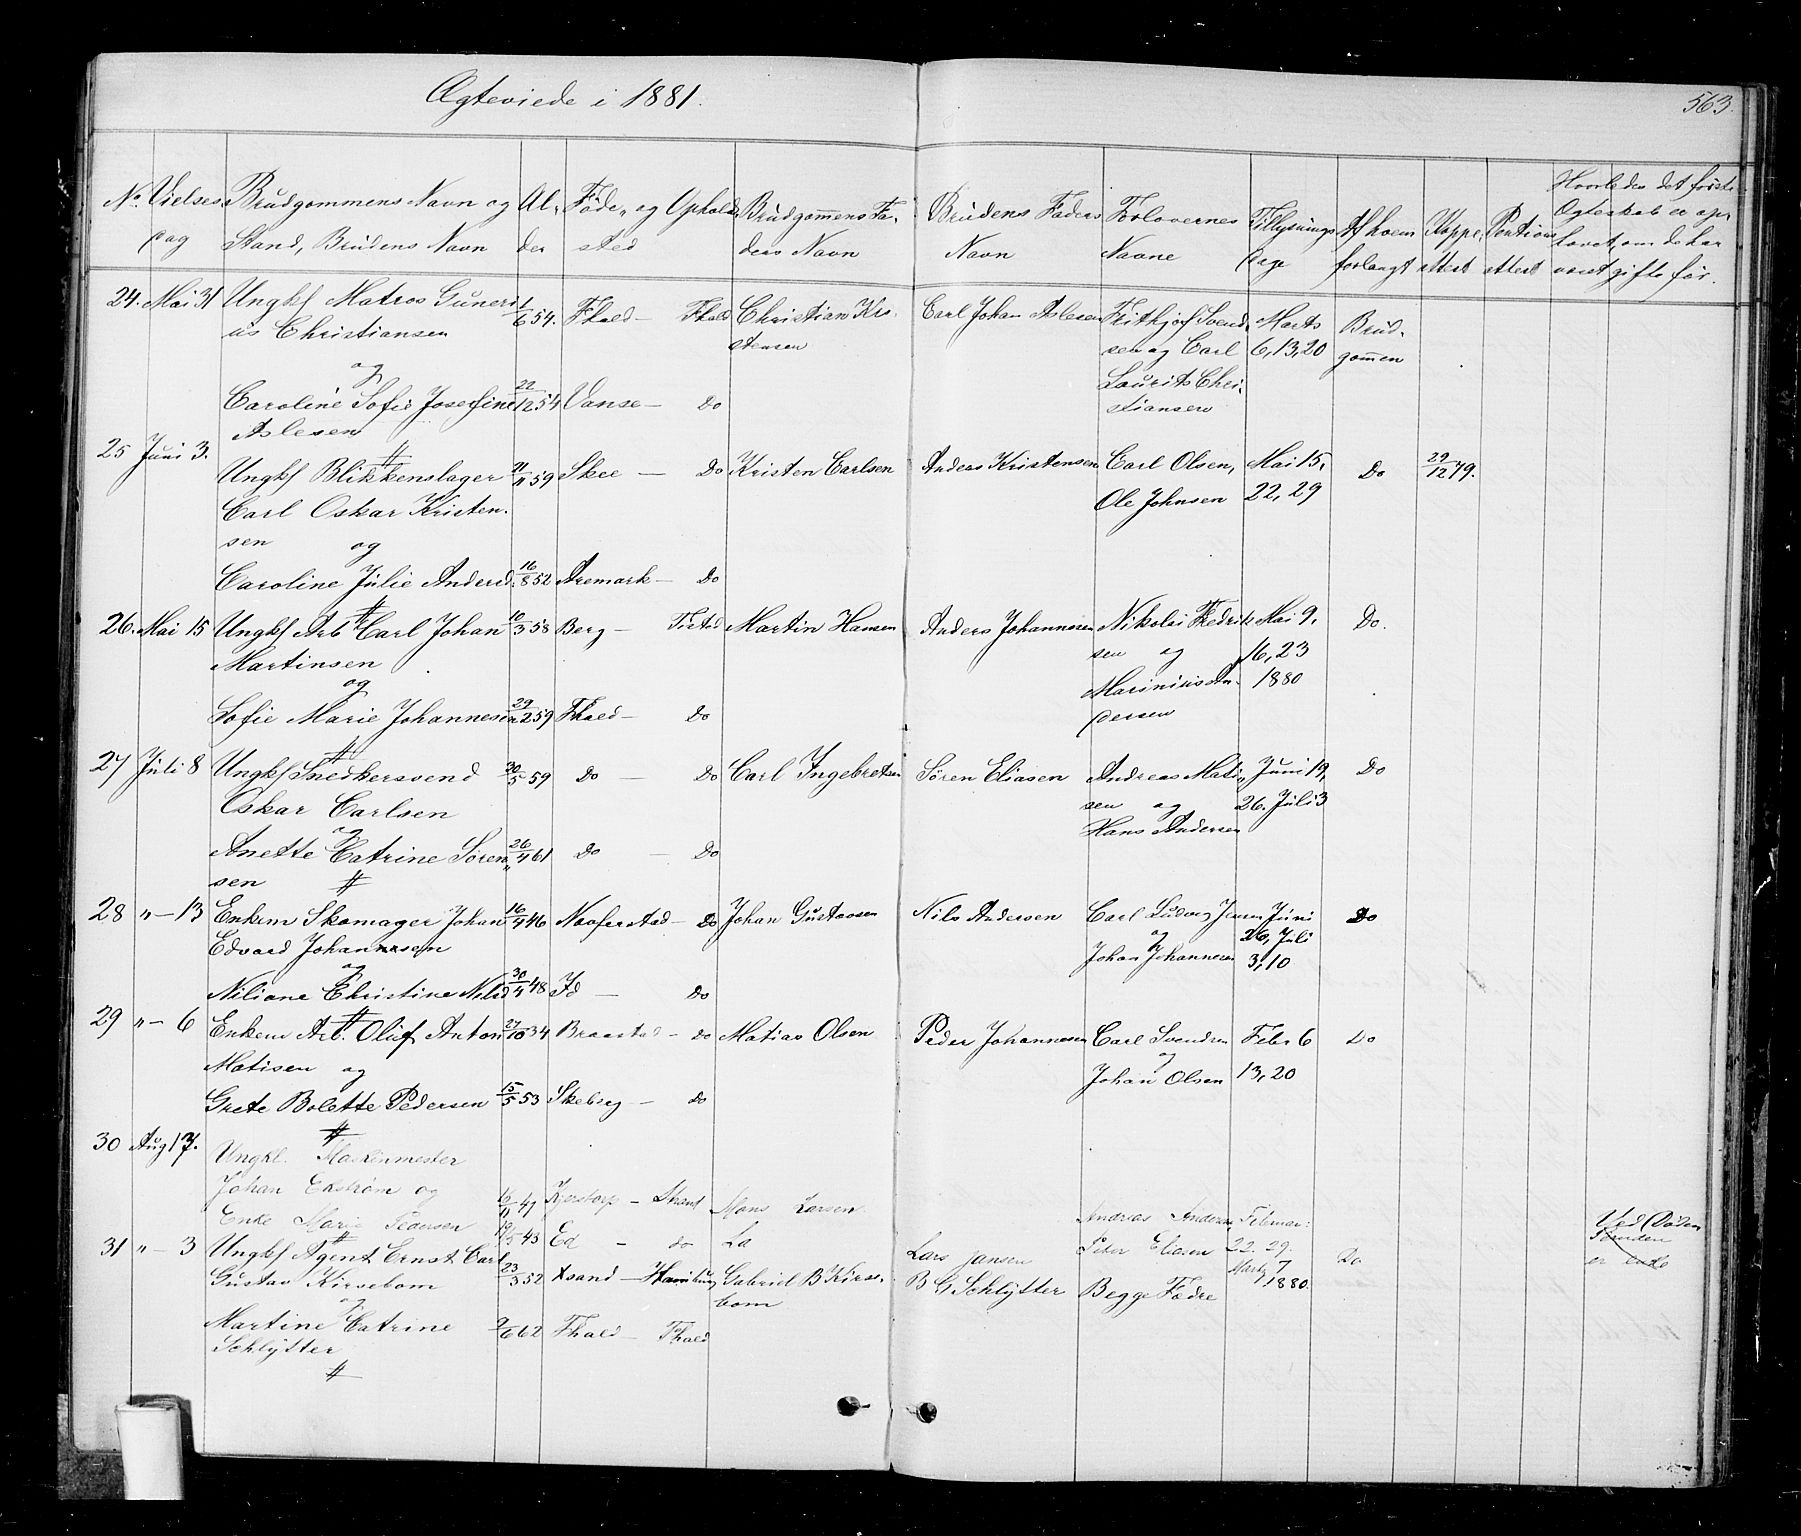 Ægteviede i 1881.
563.
No. Vielses Dag
Brudgommens Navn og Stand, Brudens Navn
Al- der
Föde- og Opholds- sted
Brudgommens Fa- ders Navn
Brudens Faders Navn
Forlovernes Navne
Tillysnings Dage
Af hvem forlangt
Koppe- attest
Portions attest
Hvorledes det første Ægteskab er op- løvet, om de har været gifte før.
24. Mai 31 Ungk Matros Guneri- 1/6 54. Fhald — Fhald Christian Kri- Carl Johan Aslesen Frithjof Svend- Marts Brud-
us Christiansen stensen sen og Carl 6, 13, 20 gommen
og Laurits Chri-
Caroline Sofie Josefine 22/12 54 Vanse — Do stiansen
Aslesen
25 Juni 3. Ungk Blikkenslager 21/11 59 Skee — Do Kristen Carlsen Anders Kristensen Carl Olsen, Mai 15, Do 29/12 79.
Carl Oskar Kristen- Ole Johnsen 22, 29
sen og
Caroline Julie Andersd. 16/8 52 Aremark — Do
26. Mai 15 Ungk Arb Carl Johan 10/3 58 Berg — Tistd Martin Hansen Anders Johannesen Nikolai Fredrik Mai 9, Do.
Martinsen sen og 16, 23
og Marinius An- 1880
Sofie Marie Johannesen 29/2 59 Fhald — Do dersen
27 Juli 8 Ungk Snedkersvend 30/5 59 Do — Do Carl Ingebretsen Søren Eliasen Andreas Mati- Juni 19, Do
Oskar Carlsen sen og 26. Juli 3
og Hans Andersen
Anette Catrine Søren- 26/4 61 Do — Do
sen
28 " — 13 Enkem Skomager Johan 16/4 46 Naaferstad — Do Johan Gustavsen Nils Andersen Carl Ludvig Jensen Juni Do
Edvard Johannesen og 26, Juli
og Johan Johannesen 3, 10
Niliane Christine Nilsd 30/4 48 Id — Do
29 " — 6 Enkem Arb. Oluf Anton 27/10 34 Braastad — Do Matias Olsen Peder Johannesen Carl Svendsen Febr 6 Do
Matisen og og 13, 20
Grete Bolette Pedersen 15/5 53 Skebrg — Do Johan Olsen
30 Aug 17. Ungkl. Maskinmester
Johan Ekstrøm og 16/11 47 Kjerstorp — Strand Mons Larsen
Enke Marie Pedersen 19/5 43 Ed — do La Lars Jansen Andreas Andersen Februar: Do Ved Døden
Peter Eliasen 22. 29. Bruden
Marts 7 1880. er enke
31 " — 3 Ungk Agent Ernst Carl 23/3 52 Xsand — Hamburg Gabriel B Kirse- B G Schlytter Begge Fædre
Gustav Kirsebom bom
og
Martine Catrine 2/6 62 Fhald — Fhald
Schlytter